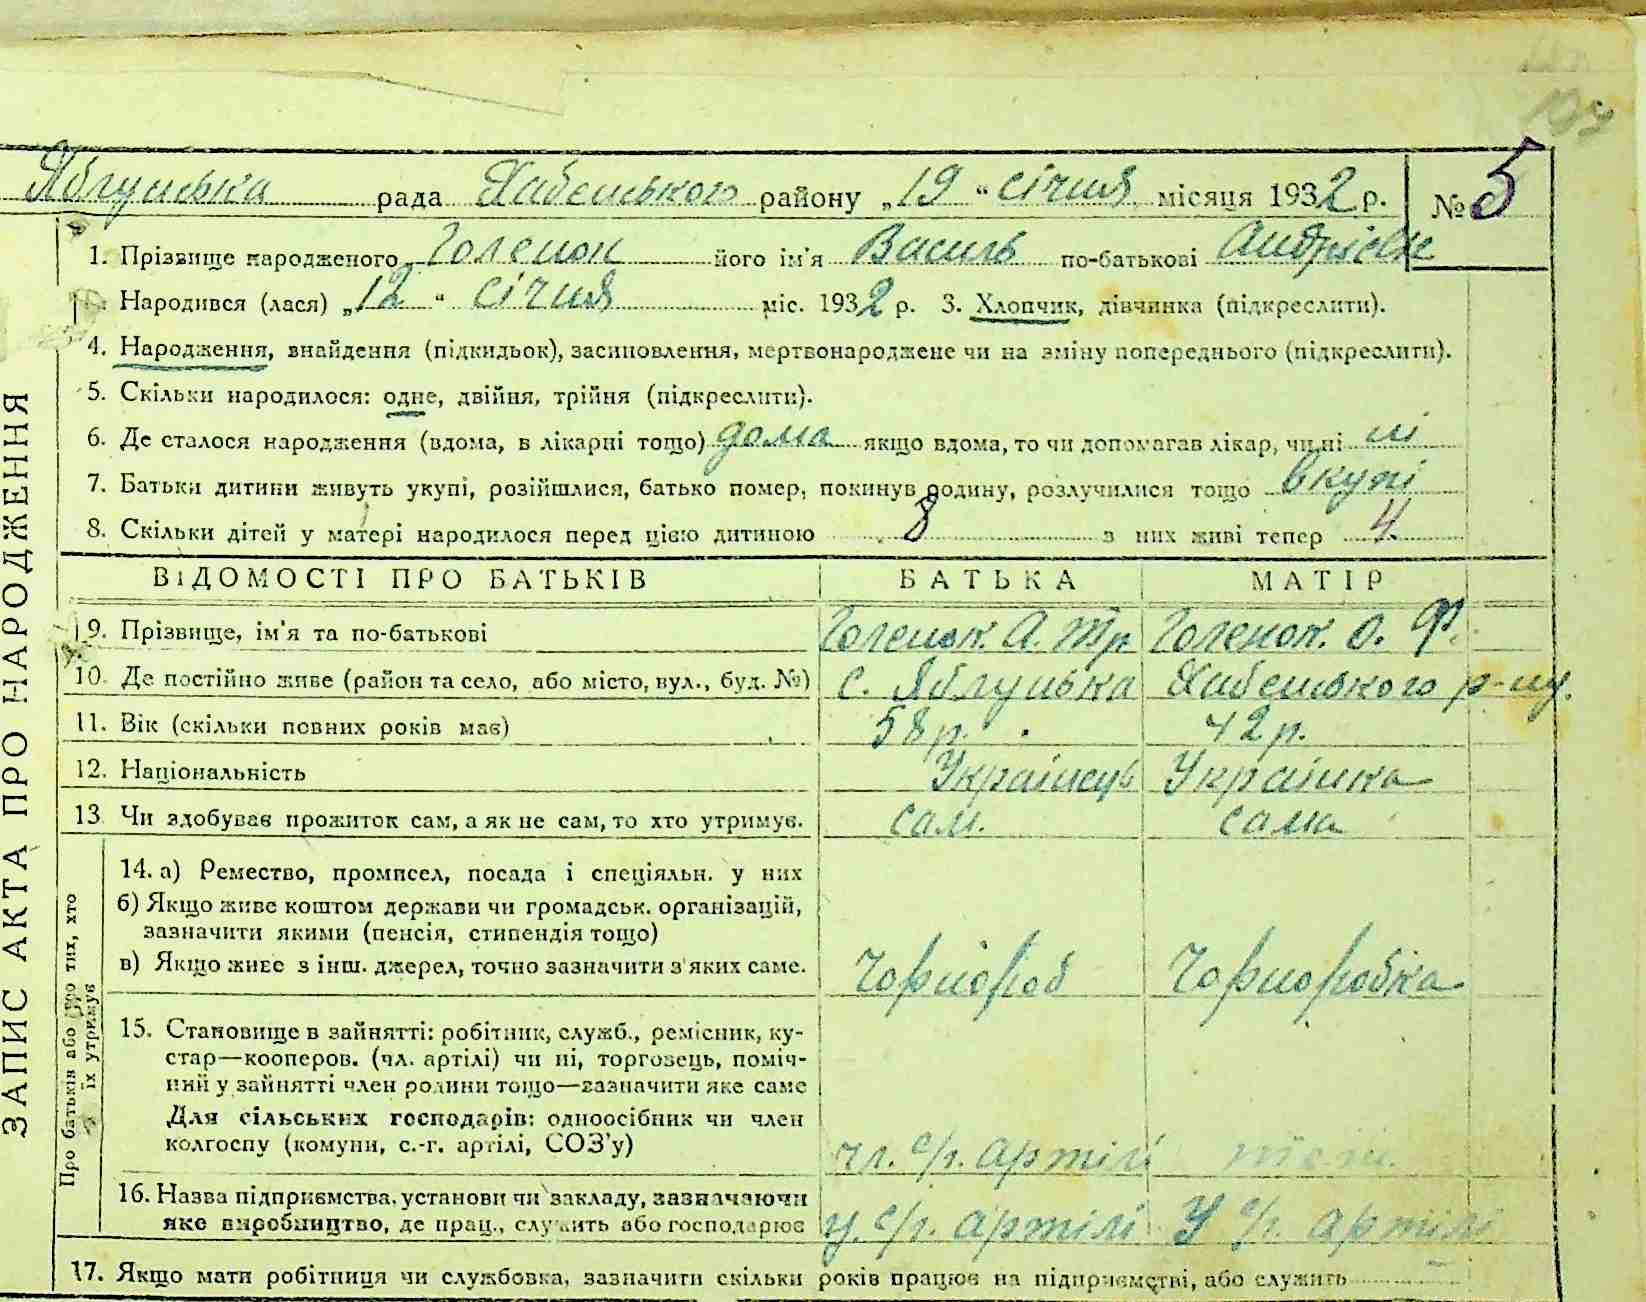 Яблунська рада Хабенського району „19“ січня місяця 1932 р. № 5
1. Прізвище народженого Голенок його ім'я Василь по-батькові Андрієв
Народився (лася) „12“ січня міс. 1932 р. 3. Хлопчик, дівчинка (підкреслити).
4. Народження, знайдення (підкидьок), засиновлення, мертвонароджене чи на зміну попереднього (підкреслити).
5. Скільки народилося: одне, двійня, трійня (підкреслити).
6. Де сталося народження (вдома, в лікарні тощо) дома якщо вдома, то чи допомагав лікар, чи ні ні
7. Батьки дитини живуть укупі, розійшлися, батько помер, покинув родину, розлучилися тощо вкупі
8. Скільки дітей у матері народилося перед цією дитиною 8 з них живі тепер 4
ВІДОМОСТІ ПРО БАТЬКІВ БАТЬКА МАТІР
9. Прізвище, ім'я та по-батькові Голенок. А. Тр. Голенок. О. Ф.
10. Де постійно живе (район та село, або місто, вул., буд. №) с. Яблунька Хабенського р-ну.
11. Вік (скільки повних років має) 58 р. 42 р.
12. Національність Українець Українка
13 Чи здобуває прожиток сам, а як не сам, то хто утримує. сам. сама
14. а) Ремество, промисел, посада і спеціяльн. у них
б) Якщо живе коштом держави чи громадськ. організацій,
зазначити якими (пенсія, стипендія тощо)
в) Якщо живе з інш. джерел, точно зазначити з яких саме. Чорнороб Чорноробка
15. Становище в зайнятті: робітник, служб., ремісник, ку-
стар—кооперов. (чл. артілі) чи ні, торговець, поміч-
ний у зайнятті член родини тощо—зазначити яке саме
Для сільських господарів: одноосібник чи член
колгоспу (комуни, с.-г. артілі, СОЗ'у) чл. с/г. артілі
16. Назва підприємства, установи чи закладу, зазначаючи
яке виробництво, де прац., служить або господарює у с/г. артілі У с/г. артілі
17. Якщо мати робітниця чи службовка, зазначити скільки років працює на підприємстві, або служить
ЗАПИС АКТА ПРО НАРОДЖЕННЯ
Про батьків або про тих, хто
їх утримує